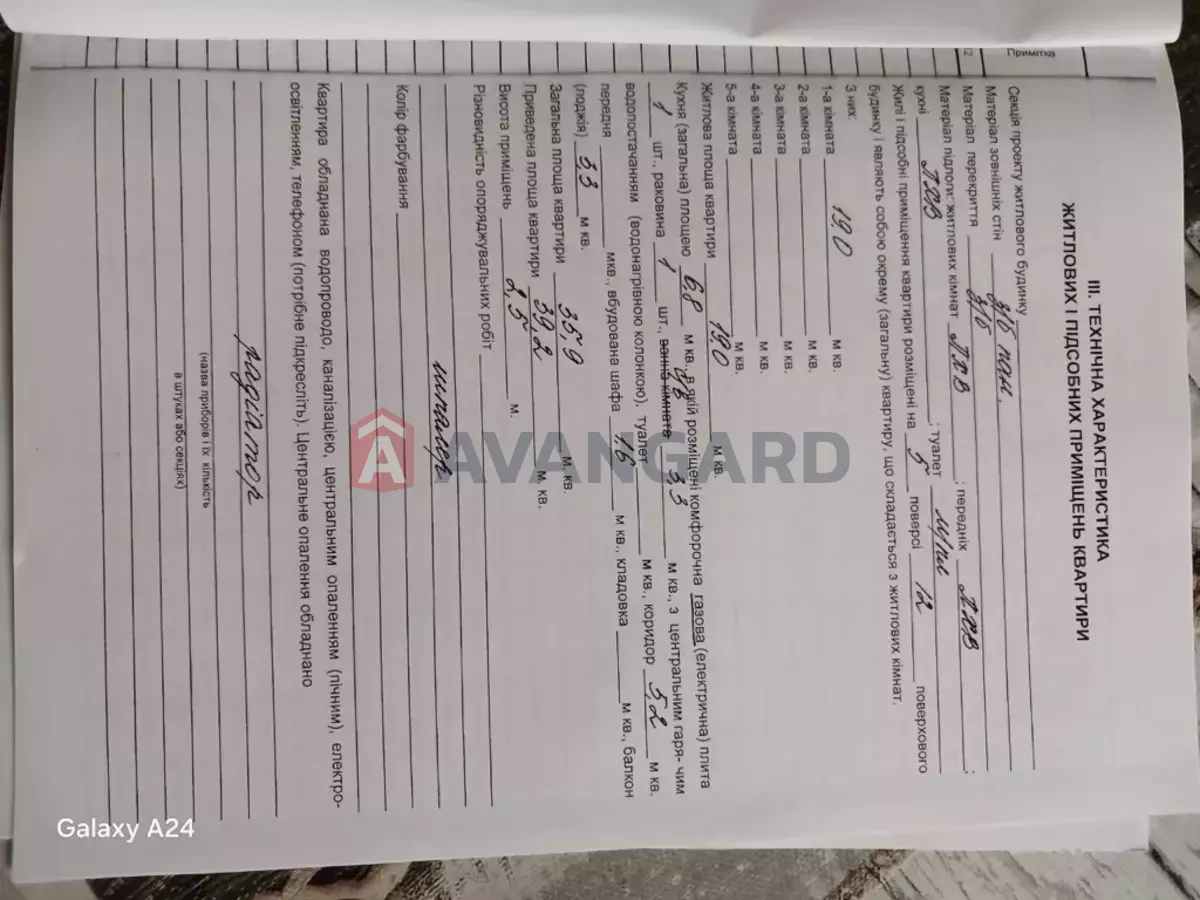 Примітка
12
III. ТЕХНІЧНА ХАРАКТЕРИСТИКА
ЖИТЛОВИХ І ПІДСОБНИХ ПРИМІЩЕНЬ КВАРТИРИ
Секція проекту житлового будинку
Матеріал зовнішніх стін з/б пан.
Матеріал перекриття з/б
Матеріал підлоги: житлових кімнат ДХВ ; передніх ДХВ ;
кухні ДХВ ; туалет м/пл
Жилі і підсобні приміщення квартири розміщені на 5 поверсі 12 поверхового
будинку і являють собою окрему (загальну) квартиру, що складається з житлових кімнат.
З них:
1-а кімната 19.0 м кв.
2-а кімната м кв.
3-а кімната м кв.
4-а кімната м кв.
5-а кімната м кв.
Житлова площа квартири 19.0 м кв.
Кухня (загальна) площею 6,8 м кв., в якій розміщені комфорочна газова (електрична) плита
1 шт., раковина 1 шт., ванна кімната с/в 3,3 м кв., з центральним гаря- чим
водопостачанням (водонагрівною колонкою), туалет м кв., коридор 5,2 м кв.
передня мкв., вбудована шафа 1.6 м кв., кладовка м кв., балкон
(лоджія) 3,3 м кв.
Загальна площа квартири 35,9 м. кв.
Приведена площа квартири 39,2 м. кв.
Висота приміщень 2,5 м.
Різновидність опоряджувальних робіт
шпалер
Колір фарбування
Квартира обладнана водопроводо, каналізацією, центральним опаленням (пічним), електро-
освітленням, телефоном (потрібне підкресліть). Центральне опалення обладнано
радіатор
(назва приборів і їх кількість
в штуках або секціях)
AVANGARD
Galaxy A24